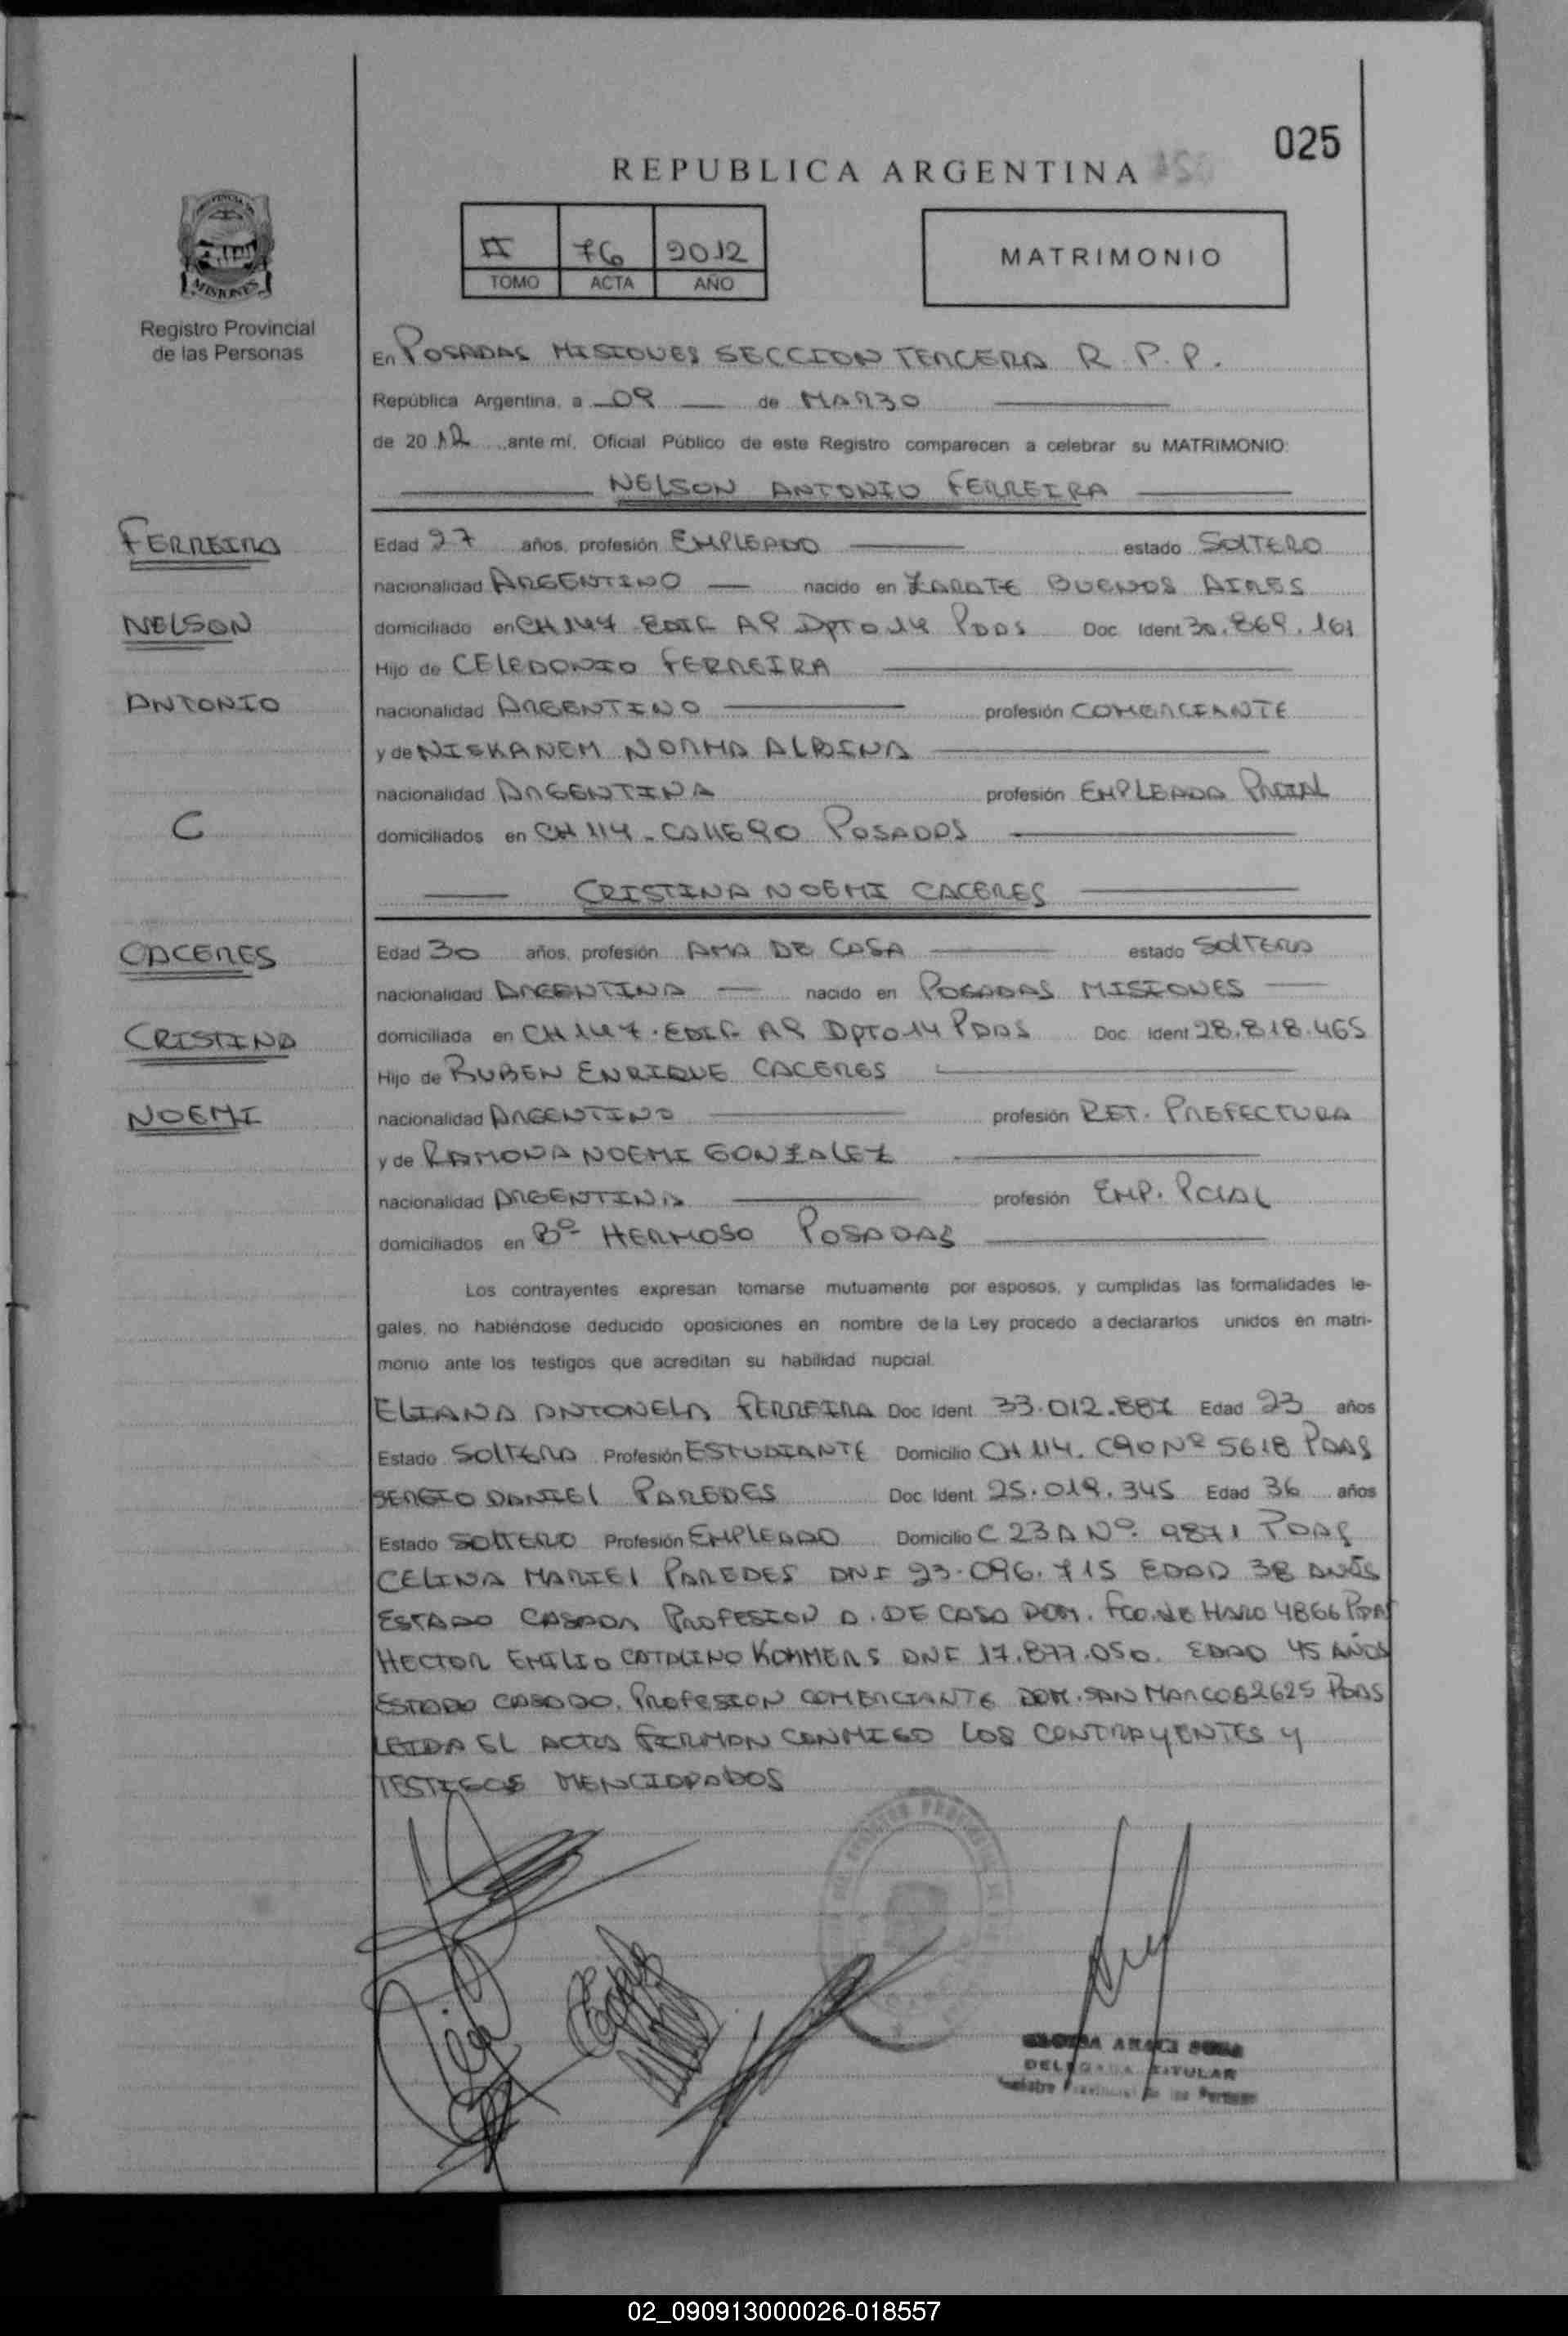 025
REPUBLICA ARGENTINA
II 76 2012
TOMO ACTA AÑO
MATRIMONIO
PROVINCIA DE
MISIONES
Registro Provincial
de las Personas
En POSADAS MISIONES SECCION TERCERA R. P. P.
República Argentina, a 09 de MARZO
de 2012 ante mí, Oficial Público de este Registro comparecen a celebrar su MATRIMONIO:
NELSON ANTONIO FERREIRA
FERREIRA
Edad 27 años, profesión EMPLEADO estado SOLTERO
nacionalidad ARGENTINO nacido en ZARATE BUENOS AIRES
NELSON
domiciliado en CH 147 EDIF A9 DPTO 14 PDAS Doc. Ident 30.869.161
Hijo de CELEDONIO FERREIRA
ANTONIO
nacionalidad ARGENTINO profesión COMERCIANTE
y de NISKANEM NORMA ALBINA
nacionalidad ARGENTINA profesión EMPLEADA PROIAL
C
domiciliados en CH 114 - CALLE 90 POSADAS
CRISTINA NOEMI CACERES
CACERES
Edad 30 años, profesión AMA DE CASA estado SOLTERA
nacionalidad ARGENTINA nacido en POSADAS MISIONES
CRISTINA
domiciliada en CH 147. EDIF A9 DPTO 14 PDAS Doc. Ident 28.818.465
Hijo de RUBEN ENRIQUE CACERES
NOEMI
nacionalidad ARGENTINO profesión RET. PREFECTURA
y de RAMONA NOEMI GONZALEZ
nacionalidad ARGENTINA profesión EMP. PCIAL
domiciliados en Bº HERMOSO POSADAS
Los contrayentes expresan tomarse mutuamente por esposos, y cumplidas las formalidades le-
gales, no habiéndose deducido oposiciones en nombre de la Ley procedo a declararlos unidos en matri-
monio ante los testigos que acreditan su habilidad nupcial.
ELIANA ANTONELA FERREIRA Doc. Ident. 33.012.887 Edad 23 años
Estado SOLTERA Profesión ESTUDIANTE Domicilio CH 114. C90 Nº 5618 PDAS
SERGIO DANIEL PAREDES Doc. Ident. 25.019.345 Edad 36 años
Estado SOLTERO Profesión EMPLEADO Domicilio C 23A Nº 9871 PDAS
CELINA MARIEL PAREDES DNI 23.096.715 EDAD 38 AÑOS
ESTADO CASADA PROFESION A. DE CASA DOM. FCO. DE HARO 4866 PDAS
HECTOR EMILIO CATALINO KOMMERS DNI 17.877.050. EDAD 45 AÑOS
ESTADO CASADO. PROFESION COMERCIANTE DOM. SAN MARCOS 2625 PDAS
LEIDA EL ACTA FIRMAN CONMIGO LOS CONTRAYENTES Y
TESTIGOS MENCIONADOS
DELEGADA TITULAR
02_090913000026-018557